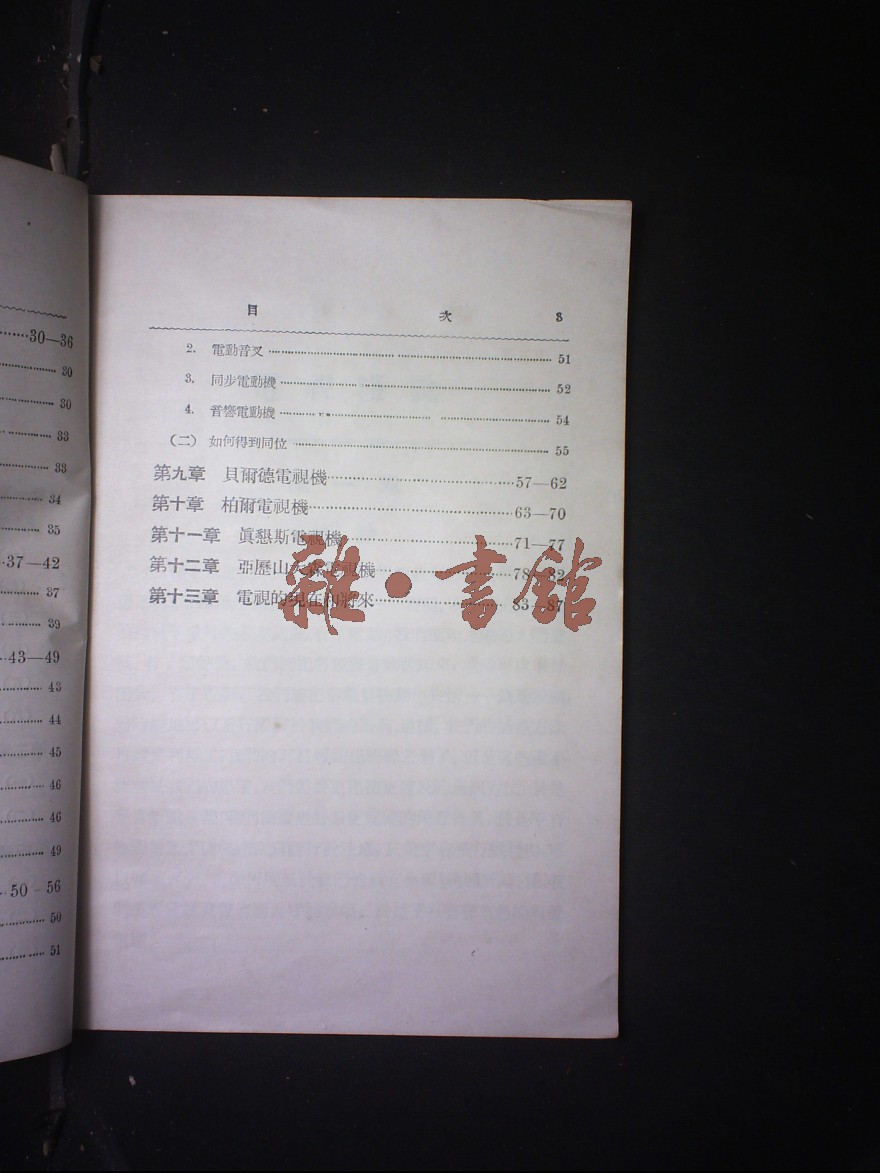 30—36
30
30
33
33
34
35
37—42
37
39
43—49
43
44
45
46
46
49
50-56
50
51
目 次 3
2. 電動音叉 51
3. 同步電動機 52
4. 音響電動機 54
(二) 如何得到同位 55
第九章 貝爾德電視機 57—62
第十章 柏爾電視機 63—70
第十一章 眞懇斯電視機 71—77
第十二章 亞歷山大森電視機 78—82
第十三章 電視的現在和將來 83—87
雜·書館